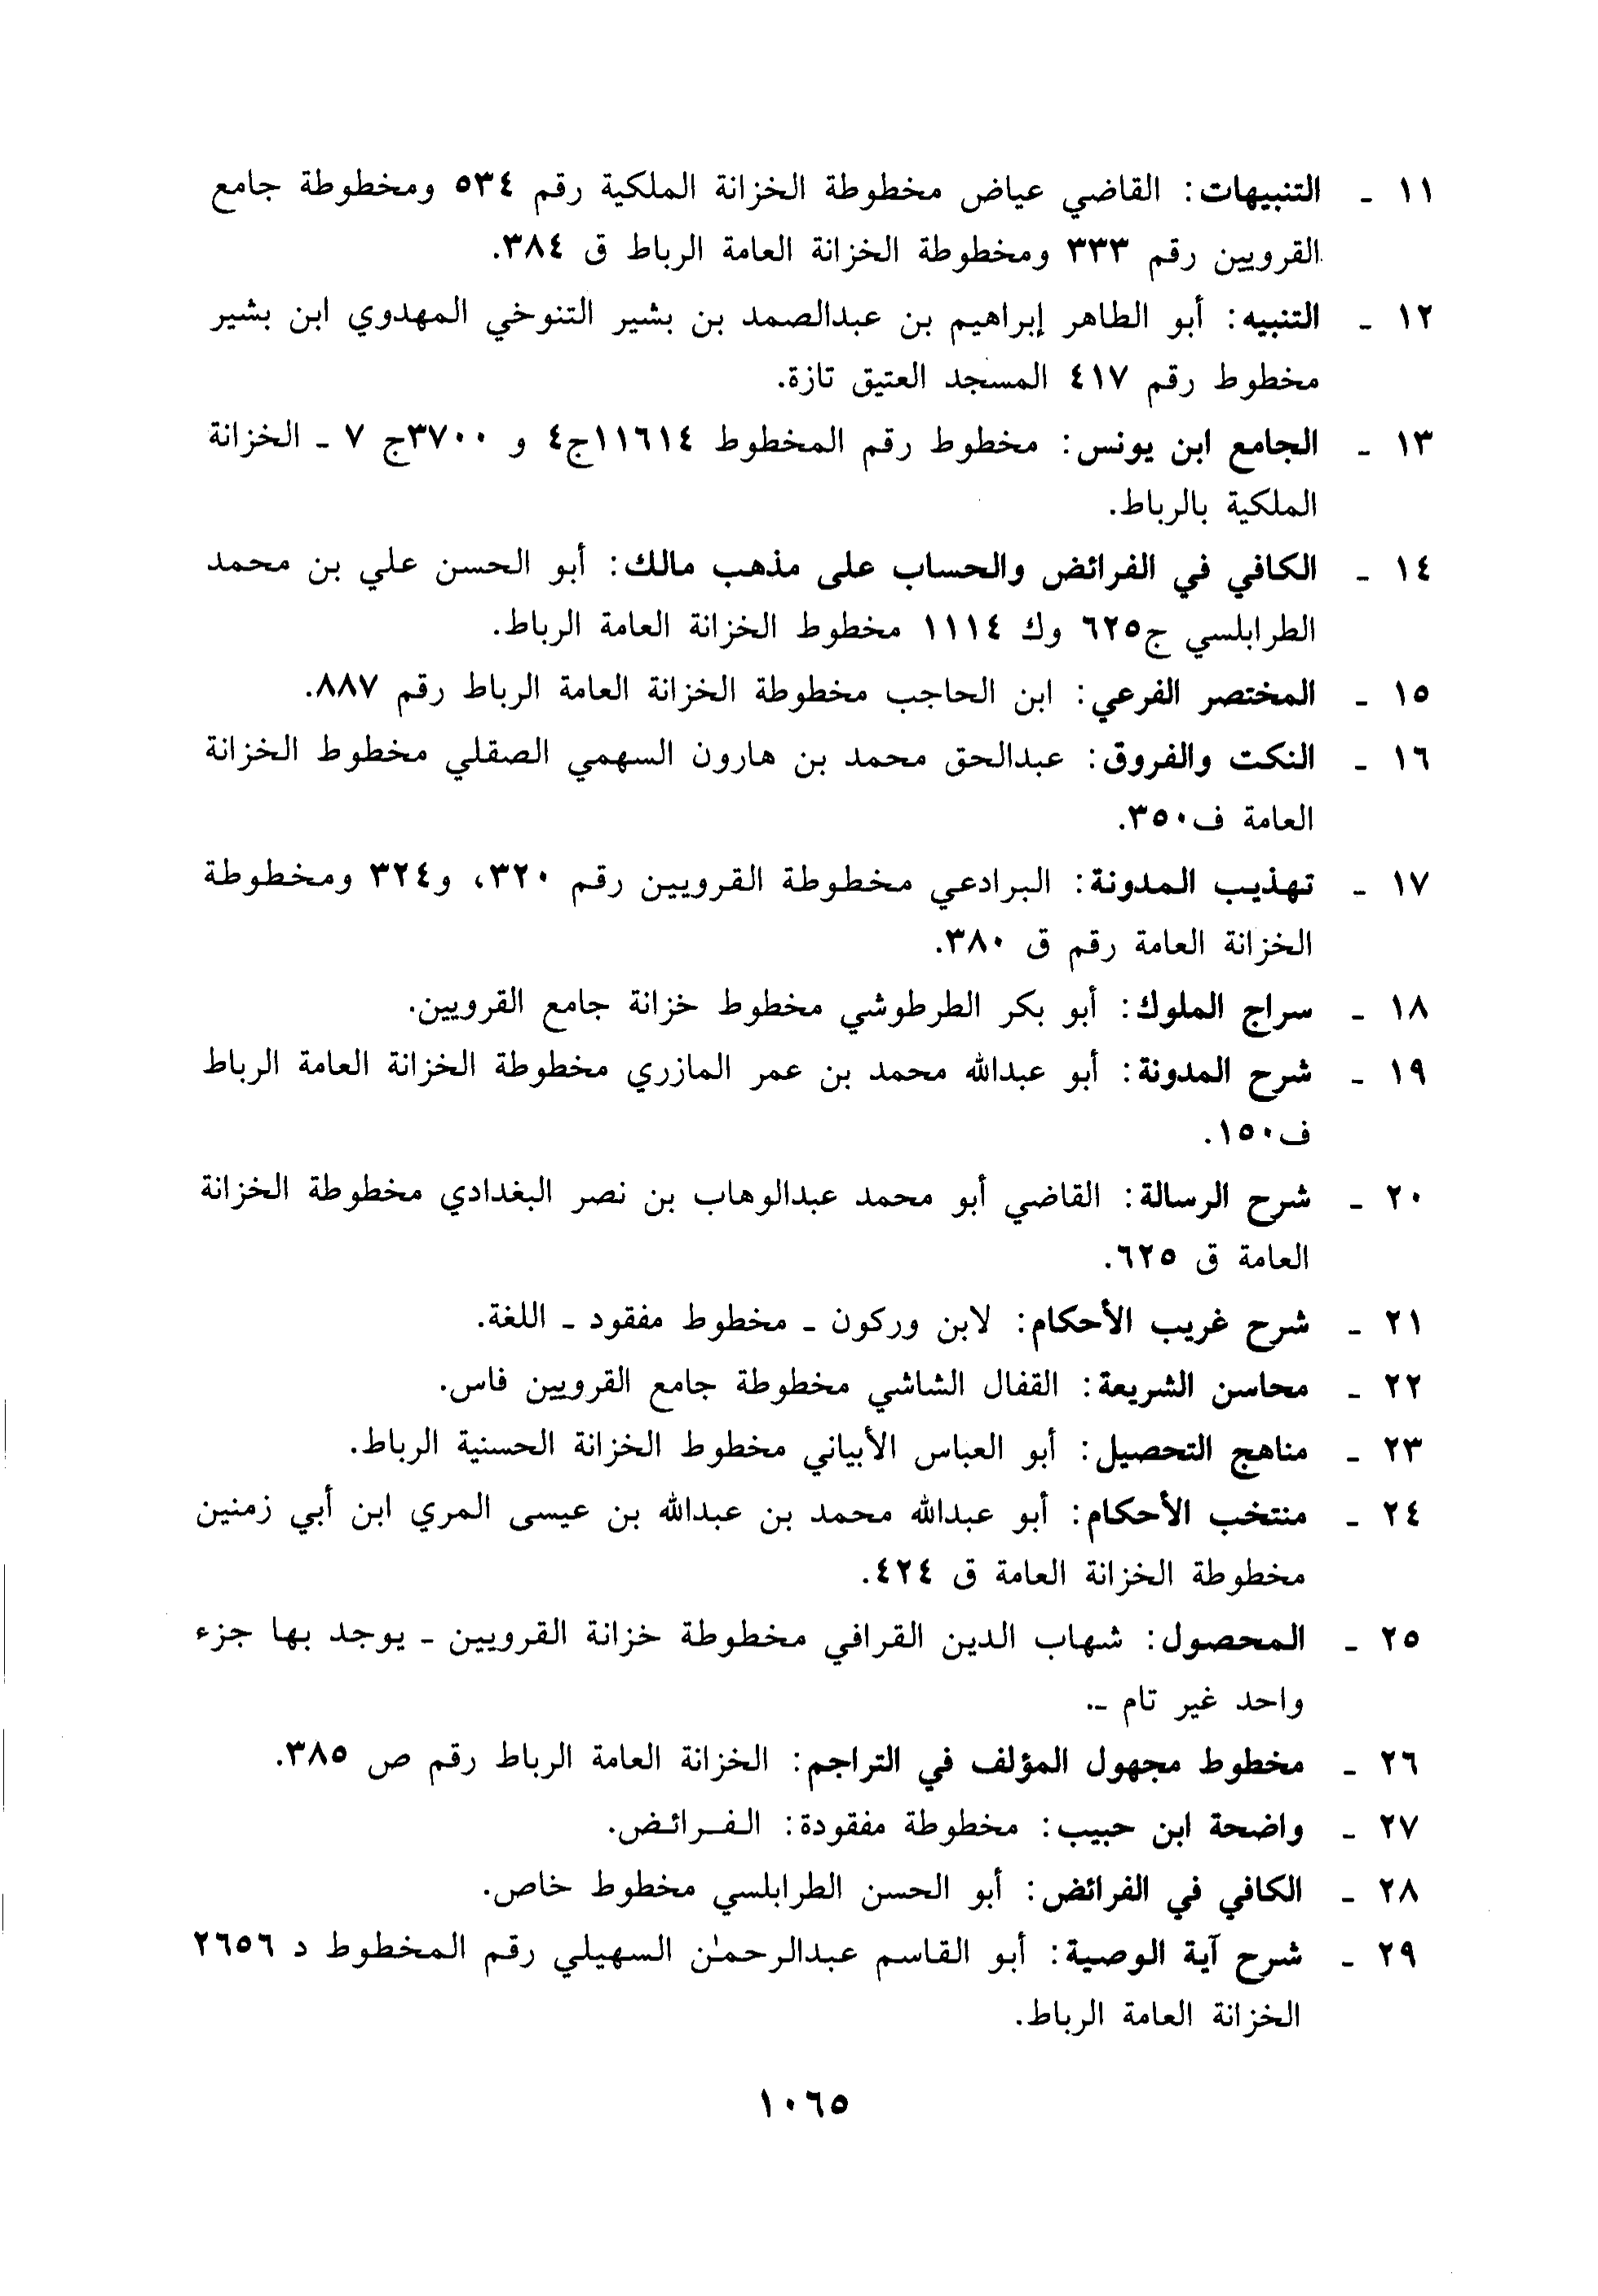 ١١ - التنبيهات: القاضي عياض مخطوطة الخزانة الملكية رقم ٥٣٤ ومخطوطة جامع
القرويين رقم ٣٣٣ ومخطوطة الخزانة العامة الرباط ق ٣٨٤.
١٢ - التنبيه: أبو الطاهر إبراهيم بن عبدالصمد بن بشير التنوخي المهدوي ابن بشير
مخطوط رقم ٤١٧ المسجد العتيق تازة.
١٣ - الجامع ابن يونس: مخطوط رقم المخطوط ١١٦١٤ج٤ و ٣٧٠٠ج ٧ - الخزانة
الملكية بالرباط.
١٤ - الكافي في الفرائض والحساب على مذهب مالك: أبو الحسن علي بن محمد
الطرابلسي ج٦٢٥ وك ١١١٤ مخطوط الخزانة العامة الرباط.
١٥ - المختصر الفرعي: ابن الحاجب مخطوطة الخزانة العامة الرباط رقم ٨٨٧.
١٦ - النكت والفروق: عبدالحق محمد بن هارون السهمي الصقلي مخطوط الخزانة
العامة ف٣٥٠.
١٧ - تهذيب المدونة: البرادعي مخطوطة القرويين رقم ٣٢٠، و٣٢٤ ومخطوطة
الخزانة العامة رقم ق ٣٨٠.
١٨ - سراج الملوك: أبو بكر الطرطوشي مخطوط خزانة جامع القرويين.
١٩ - شرح المدونة: أبو عبدالله محمد بن عمر المازري مخطوطة الخزانة العامة الرباط
ف١٥٠.
٢٠ - شرح الرسالة: القاضي أبو محمد عبدالوهاب بن نصر البغدادي مخطوطة الخزانة
العامة ق ٦٢٥.
٢١ - شرح غريب الأحكام: لابن وركون - مخطوط مفقود - اللغة.
٢٢ - محاسن الشريعة: القفال الشاشي مخطوطة جامع القرويين فاس.
٢٣ - مناهج التحصيل: أبو العباس الأبياني مخطوط الخزانة الحسنية الرباط.
٢٤ - منتخب الأحكام: أبو عبدالله محمد بن عبدالله بن عيسى المري ابن أبي زمنين
مخطوطة الخزانة العامة ق ٤٢٤.
٢٥ - المحصول: شهاب الدين القرافي مخطوطة خزانة القرويين - يوجد بها جزء
واحد غير تام -.
٢٦ - مخطوط مجهول المؤلف في التراجم: الخزانة العامة الرباط رقم ص ٣٨٥.
٢٧ - واضحة ابن حبيب: مخطوطة مفقودة: الفرائض.
٢٨ - الكافي في الفرائض: أبو الحسن الطرابلسي مخطوط خاص.
٢٩ - شرح آية الوصية: أبو القاسم عبدالرحمٰن السهيلي رقم المخطوط د ٢٦٥٦
الخزانة العامة الرباط.
١٠٦٥